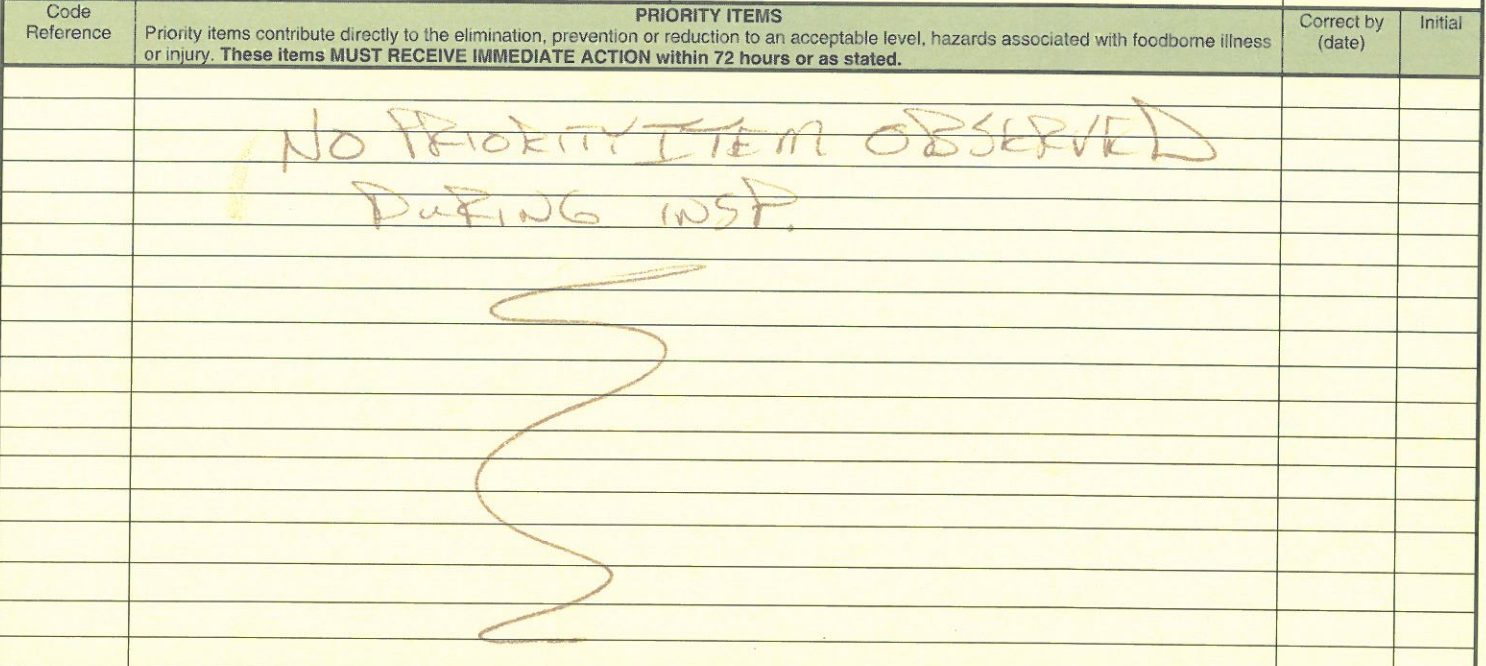 Code
Reference
PRIORITY ITEMS
Priority items contribute directly to the elimination, prevention or reduction to an acceptable level, hazards associated with foodborne illness
or injury. These items MUST RECEIVE IMMEDIATE ACTION within 72 hours or as stated.
Correct by
(date)
Initial
NO PRIORITY ITEM OBSERVED
DURING INSP.